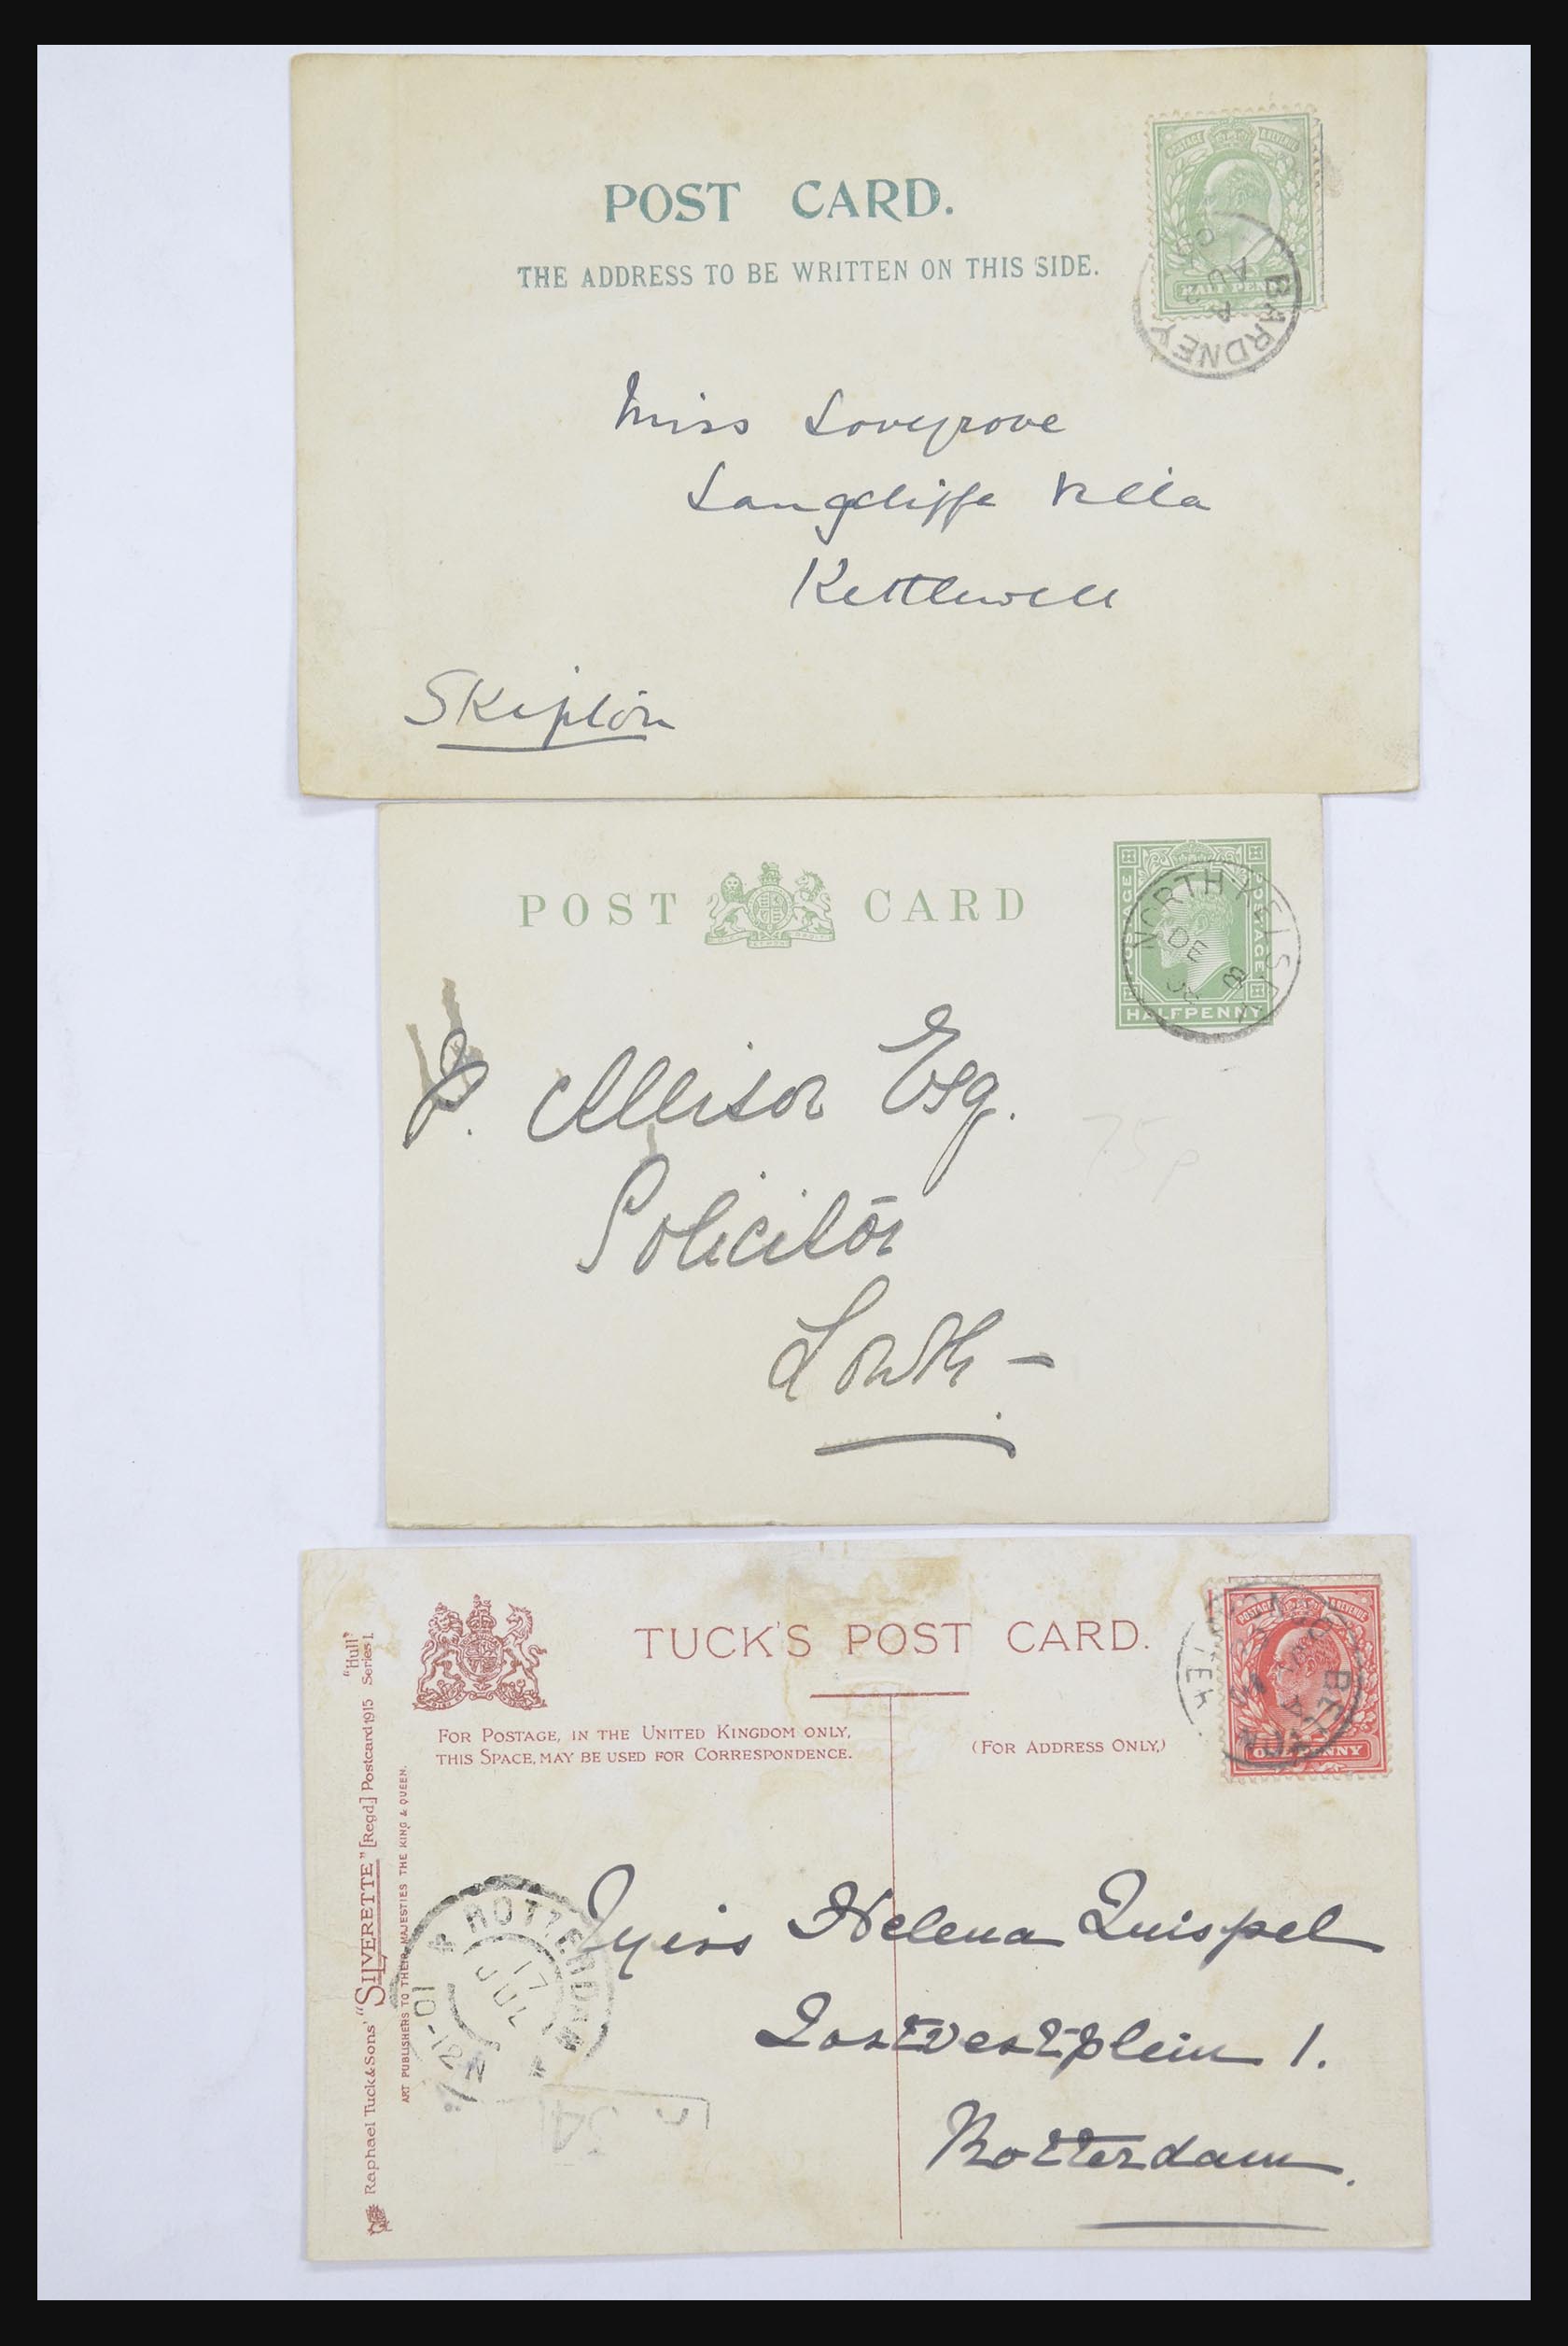 POST CARD.
THE ADDRESS TO BE WRITTEN ON THIS SIDE.
POSTAGE REVENUE
HALF PENNY
BARDNEY
A
AU
Miss Lovegrove
Langcliffe Villa
Kettlewell
Skipton
POST CARD
POSTAGE POSTAGE
HALFPENNY
NORTH KELSEY
DE 8
J. Allison Esq.
Solicitor
Louth -
75p
TUCK'S POST CARD.
FOR POSTAGE, IN THE UNITED KINGDOM ONLY,
THIS SPACE, MAY BE USED FOR CORRESPONDENCE.
(FOR ADDRESS ONLY.)
POSTAGE & REVENUE
ONE PENNY
Miss Helena Quispel
Oostvestplein 1.
Rotterdam.
ROTTERDAM
17 JUL
"Hull"
Series I.
Raphael Tuck & Sons' "SILVERETTE" [Regd.] Postcard 1915
ART PUBLISHERS TO THEIR MAJESTIES THE KING & QUEEN.